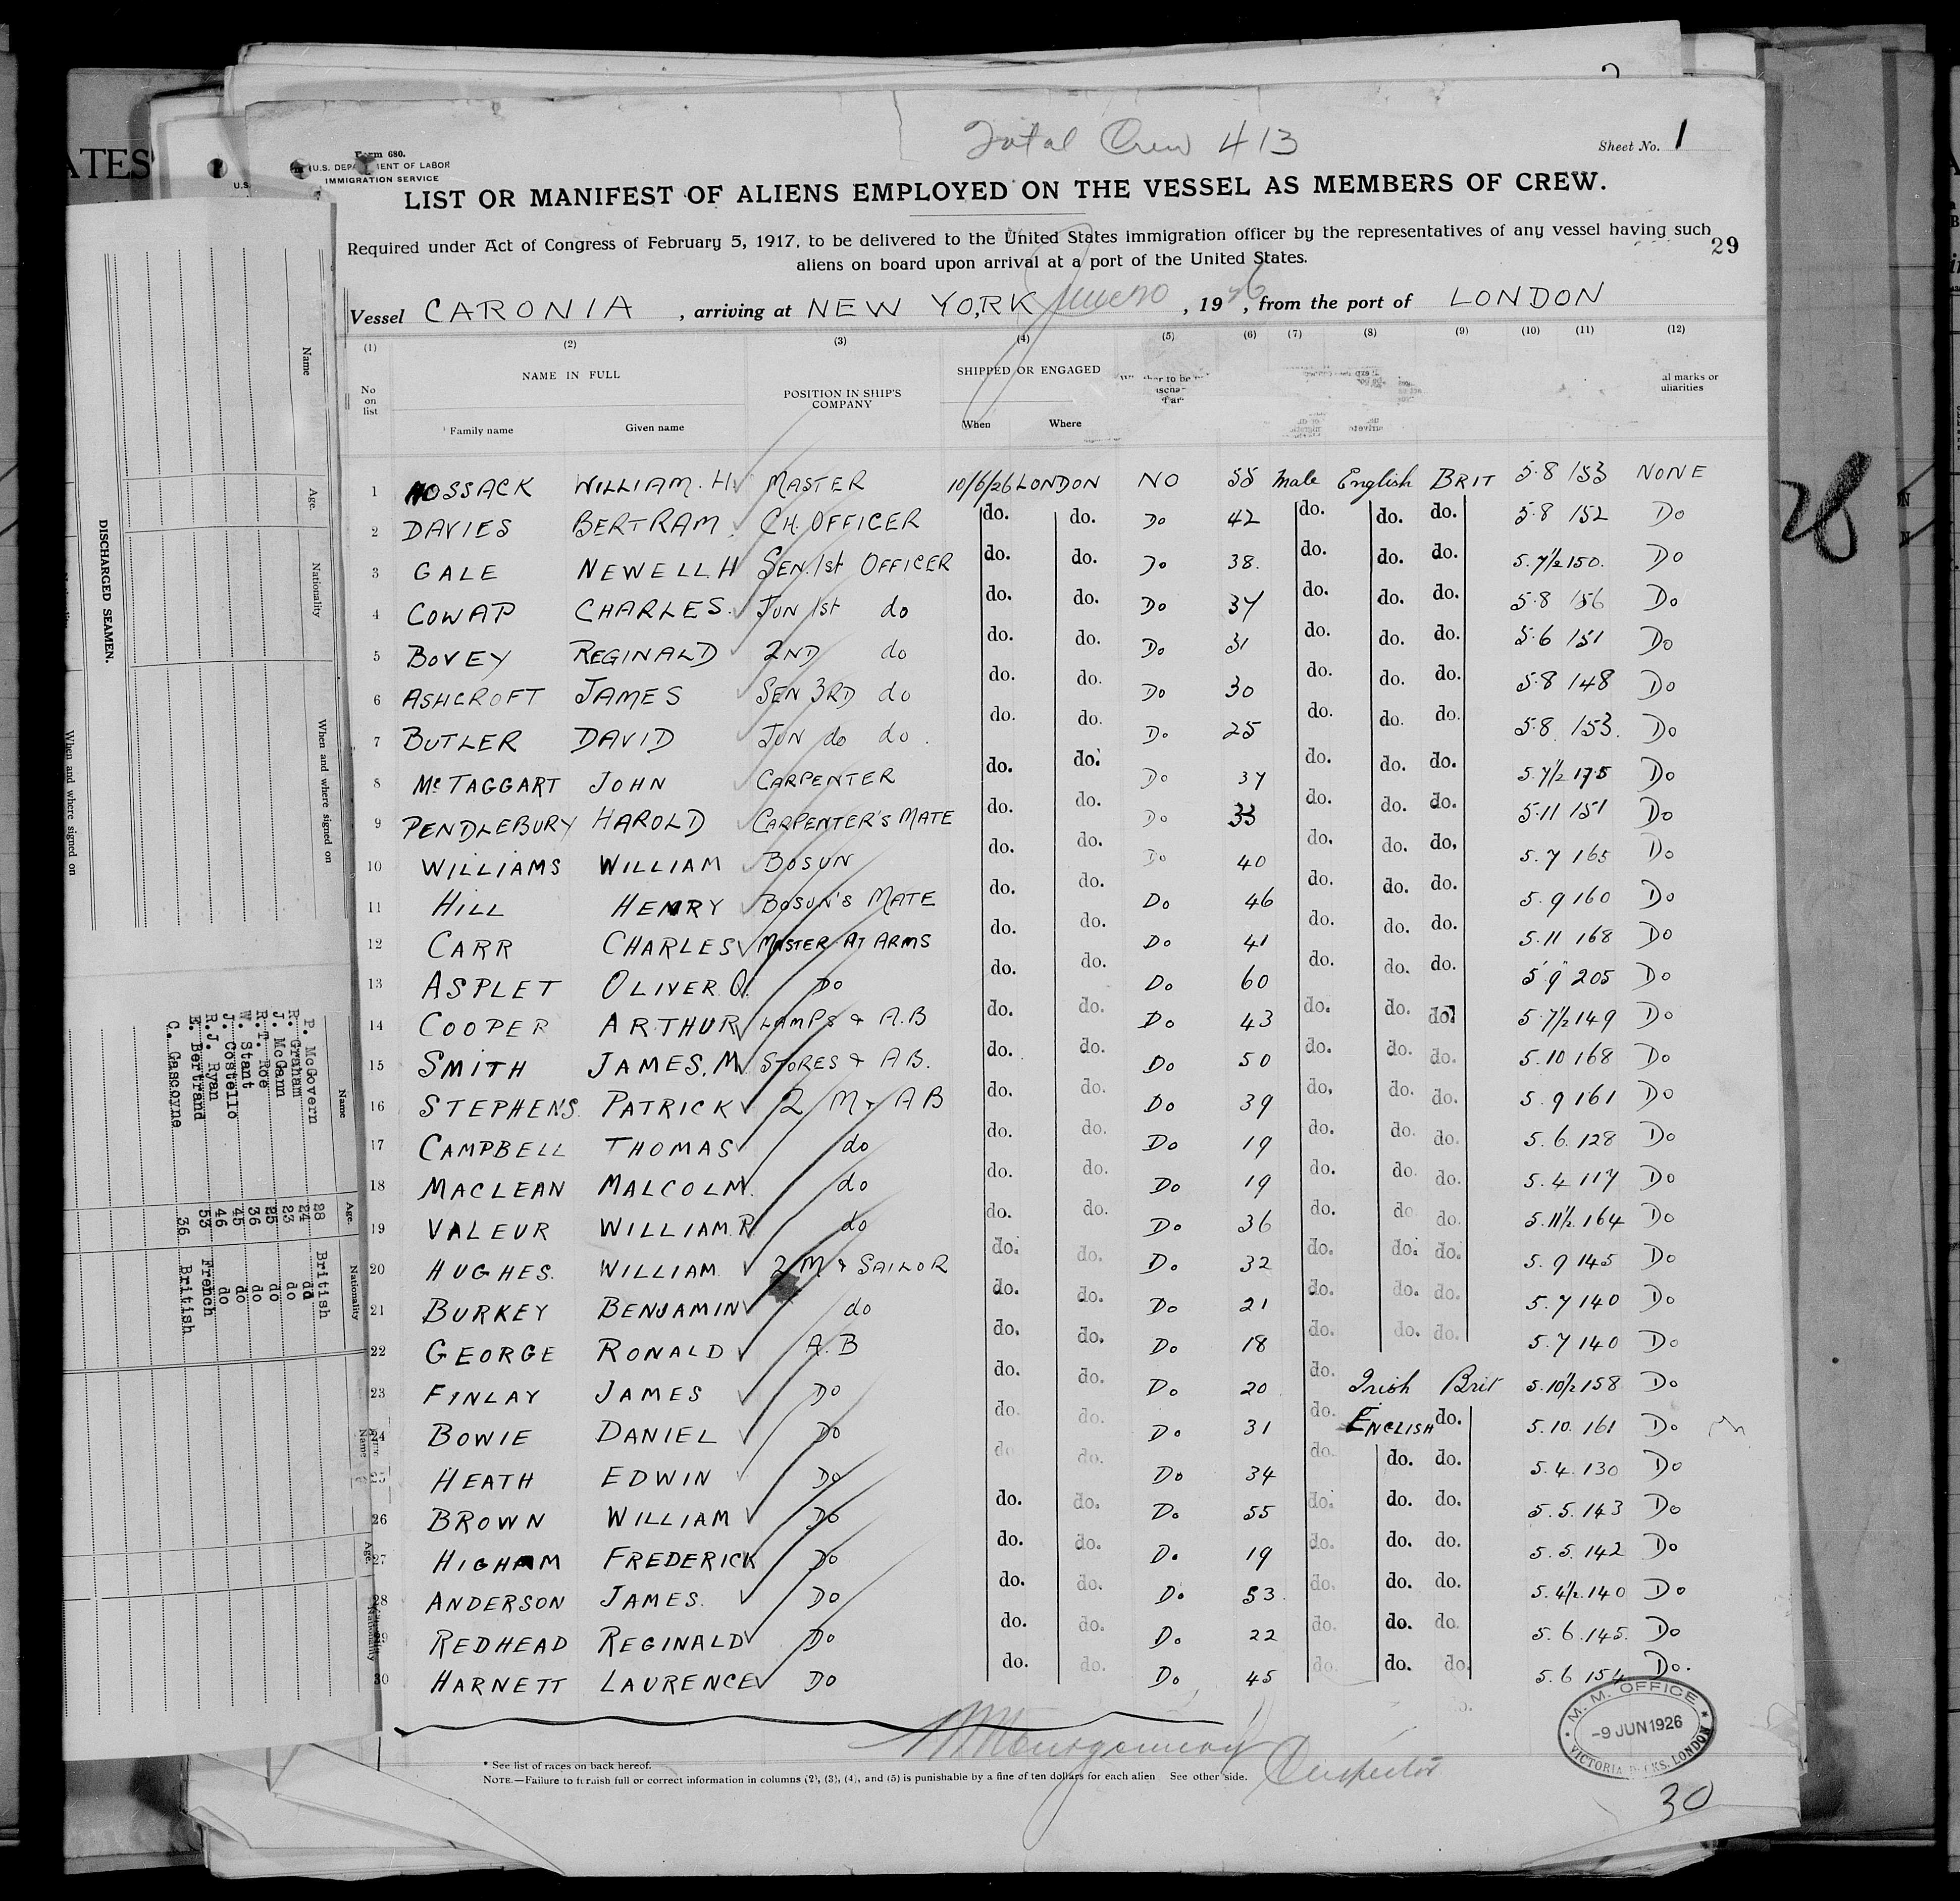 Total Crew 413
Form 680.
U.S. DEPARTMENT OF LABOR
IMMIGRATION SERVICE
Sheet No. 1
LIST OR MANIFEST OF ALIENS EMPLOYED ON THE VESSEL AS MEMBERS OF CREW.
Required under Act of Congress of February 5, 1917, to be delivered to the United States immigration officer by the representatives of any vessel having such
aliens on board upon arrival at a port of the United States.
29
Vessel CARONIA , arriving at NEW YORK , 1926 , from the port of LONDON
(1) (2) (3) (4) (5) (6) (7) (8) (9) (10) (11) (12)
No on list NAME IN FULL POSITION IN SHIP'S COMPANY SHIPPED OR ENGAGED al marks or uliarities
Family name Given name When Where
1 HOSSACK WILLIAM. H MASTER 10/6/26 LONDON NO 55 Male English BRIT 5.8 153 NONE
2 DAVIES BERTRAM CH. OFFICER do. do. Do 42 do. do. do. 5.8 152 Do
3 GALE NEWELL H SEN. 1st OFFICER do. do. Do 38. do. do. do. 5.7½ 150. Do
4 COWAP CHARLES. JUN 1st do do. do. Do 37 do. do. do. 5.8 156 Do
5 BOVEY REGINALD 2ND do do. do. Do 31 do. do. do. 5.6 151 Do
6 ASHCROFT JAMES SEN 3RD do do. do. Do 30 do. do. do. 5.8 148 Do
7 BUTLER DAVID JUN do do. do. do. Do 25 do. do. do. 5.8 153. Do
8 Mc TAGGART JOHN CARPENTER do. do. Do 37 do. do. do. 5.7½ 175 Do
9 PENDLEBURY HAROLD CARPENTER'S MATE do. do. Do 33 do. do. do. 5.11 151 Do
10 WILLIAMS WILLIAM BOSUN do. do. Do 40 do. do. do. 5.7 165 Do
11 HILL HENRY BOSUN'S MATE do. do. Do 46 do. do. do. 5.9 160 Do
12 CARR CHARLES MASTER AT ARMS do. do. Do 41 do. do. do. 5.11 168 Do
13 ASPLET OLIVER. Q. Do do. do. Do 60 do. do. do. 5 9 205 Do
14 COOPER ARTHUR LAMPS & A.B do. do. Do 43 do. do. do. 5.7½ 149 Do
15 SMITH JAMES. M. STORES & A B. do. do. Do 50 do. do. do. 5.10 168 Do
16 STEPHENS. PATRICK 2 M & A B do. do. Do 39 do. do. do. 5.9 161 Do
17 CAMPBELL THOMAS do do. do. Do 19 do. do. do. 5.6. 128 Do
18 MACLEAN MALCOLM. do do. do. Do 19 do. do. do. 5.4 117 Do
19 VALEUR WILLIAM. R do do. do. Do 36 do. do do. 5.11½ 164 Do
20 HUGHES. WILLIAM 2 M & SAILOR do. do. Do. 32 do. do. do. 5.9 145 Do
21 BURKEY BENJAMIN do do. do. Do 21 do. do. do. 5.7 140 Do
22 GEORGE RONALD A.B do. do. Do 18 do. do. do. 5.7 140 Do
23 FINLAY JAMES Do do. do. Do 20 do. Irish Brit 5.10½ 158 Do
24 BOWIE DANIEL Do do. do. Do 31 do. ENGLISH do. 5.10. 161 Do
25 HEATH EDWIN Do do do. Do 34 do. do. do. 5.4. 130 Do
26 BROWN WILLIAM Do do. do. Do. 55 do. do. do. 5.5. 143 Do
27 HIGHAM FREDERICK Do do. do. Do. 19 do. do. do. 5.5. 142 Do
28 ANDERSON JAMES. Do do. do. Do. 53. do. do. do. 5.4½. 140 Do
29 REDHEAD REGINALD Do do. do. Do. 22 do. do. do. 5.6.145. Do
30 HARNETT LAURENCE Do do. do. Do 45 do. do. do. 5.6 154 Do.
Inspector
* See list of races on back hereof.
NOTE.—Failure to furnish full or correct information in columns (2), (3), (4), and (5) is punishable by a fine of ten dollars for each alien See other side.
M. M. OFFICE
-9 JUN 1926
VICTORIA DOCKS, LONDON
30
28
DISCHARGED SEAMEN.
Name Age. Nationality When and where signed on
P. McGovern 28 British
R. Graham 24 do
J. McGann 23 do
R.T. Roe 25 do
W. Stant 36 do
J. Costello 45 do
R.J. Ryan 46 do
E. Bertrand 53 French
C. Gascoyne 36 British
Name Age. Nationality
When and where signed on
ATES'